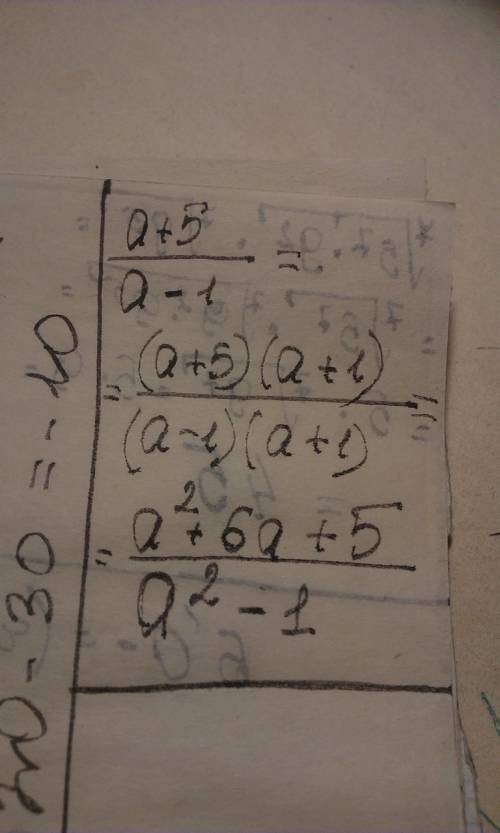 a+5
a-1 =
= (a+5)(a+1) =
(a-1)(a+1)
= a²+6a+5
a²-1
-30=-10